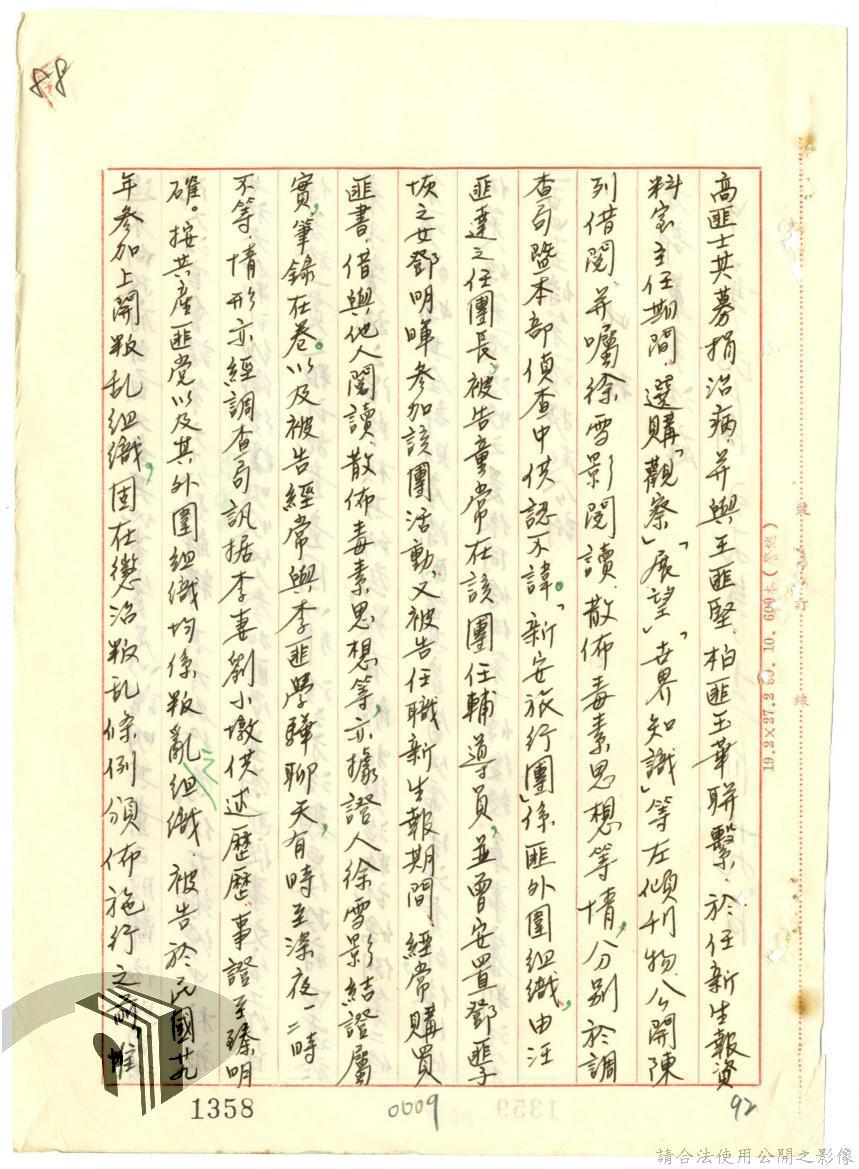 88
高匪士其募捐治病，并與王匪堅、柏匪玉華聯繫，於任新生報資
料室主任期間，選購「觀察」「展望」「世界知識」等左傾刊物，公開陳
列借閱，并囑徐雪影閱讀，散佈毒素思想等情，分別於調
查局暨本部偵查中供認不諱。「新安旅行團」係匪外圍組織，由汪
匪達之任團長，被告童常在該團任輔導員，並曾安置鄧匪子
恢之女鄧明暉參加該團活動，又被告任職新生報期間，經常購買
匪書，借與他人閱讀，散佈毒素思想等，亦據證人徐雪影結證屬
實，筆錄在卷。以及被告經常與李匪學驊聊天，有時至深夜一二時
不等，情形亦經調查局訊据李妻劉小墩供述歷歷，事證至臻明
確。按共產匪党以及其外圍組織均係叛亂之組織，被告於民國廿九
年參加上開叛乱組織，固在懲治叛乱條例頒佈施行之前，惟
裝 訂 線
1358
0009
1359
92
請合法使用公開之影像